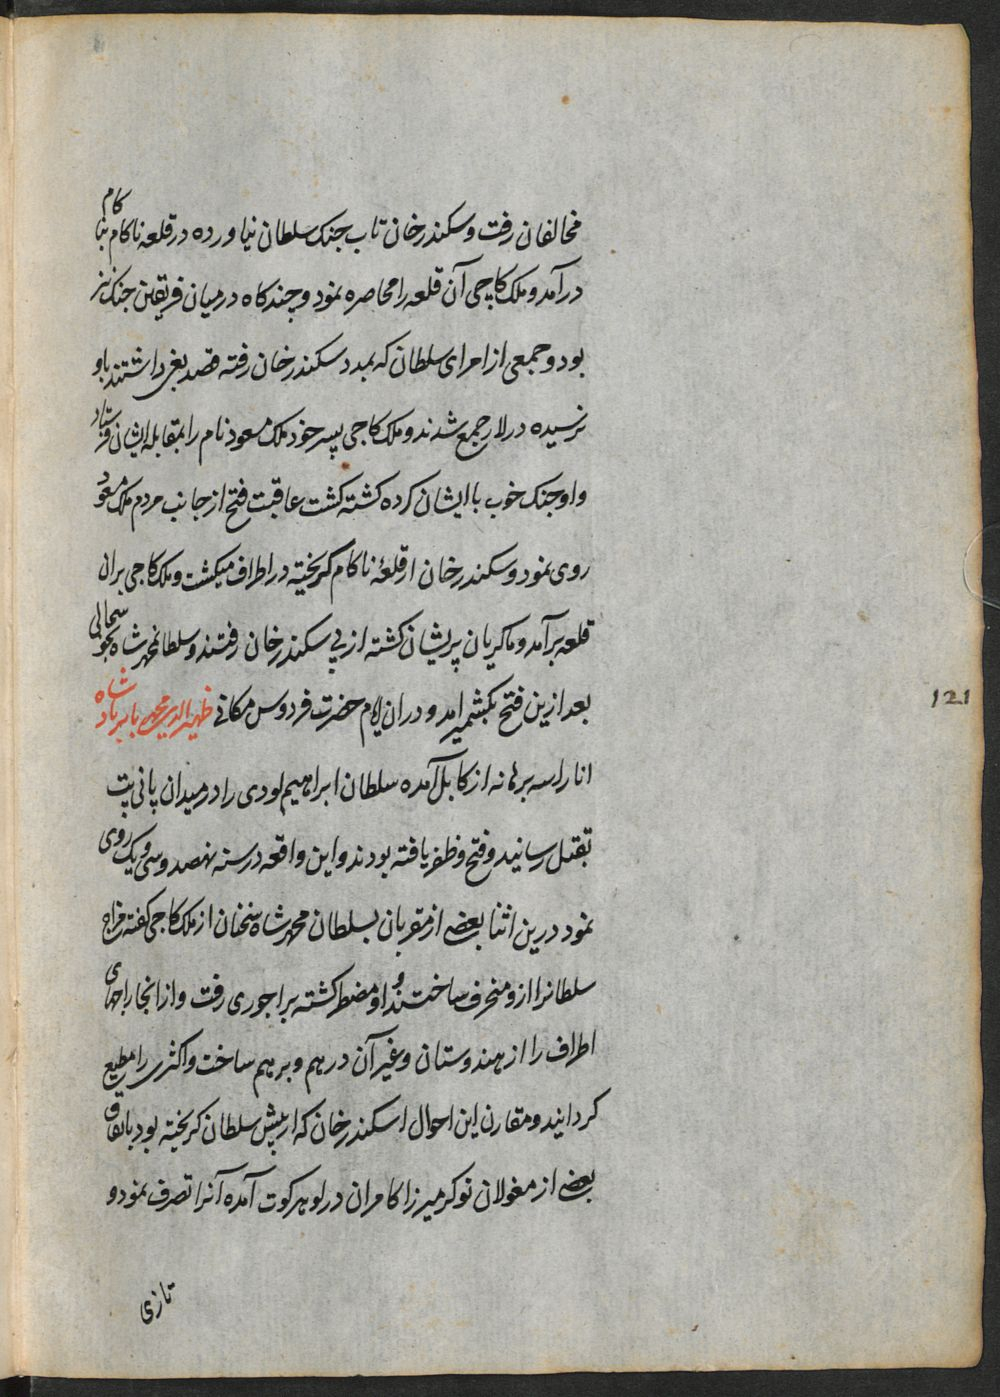 مخالفان رفت و سکندر خان تاب جنک سلطان نیاورده در قلعه ناکام بنا کام
درآمد و ملک کاچی آن قلعه را محاصره نمود و چند کاه درمیان فریقین جنک نیز
بود و جمعی از امرای سلطان که بمدد سکندر خان رفته قصد بغی داشتند باو
نرسیده در لار جمع شدند و ملک کاجی پسر خود ملک مسعود نام را بمقابله ایشان فرستاد
و او جنک خوب با ایشان کرده کشته کشت عاقبت فتح از جانب مردم ملک مسعود
روی نمود و سکندر خان از قلعهٔ ناکام کریخته در اطراف میکشت و ملک کاجی بران
قلعه برآمد و ماکریان پریشان کشته از پی سکندر خان رفتند و سلطان محمد شاه بخوشحالی
بعد ازین فتح بکشمیر آمد و دران ایام حضرت فردوس مکانی ظهیر الدین محمد بابر بادشاه
انار الله برهانه از کابل آمده سلطان ابراهیم لودی را در میدان پانی پت
بقتل رسانید و فتح و ظفر یافته بودند و این واقعه در سنه نهصد و سی و یک روی
نمود درین اثنا بعضی از مقربان بسلطان محمد شاه سخنان از ملک کاجی کفته مزاج
سلطانرا ازو منحرف ساختند و او مضطر کشته براجوری رفت و از انجا راجهای
اطراف را از هندوستان و غیر آن درهم و برهم ساخت و اکثری را مطیع
کردانید و مقارن این احوال اسکندر خان که از پیش سلطان کریخته بود باتفاق
بعضی از مغولان نوکر میرزا کامران در لوهرکوت آمده آنرا تصرف نمود و
تازی
121